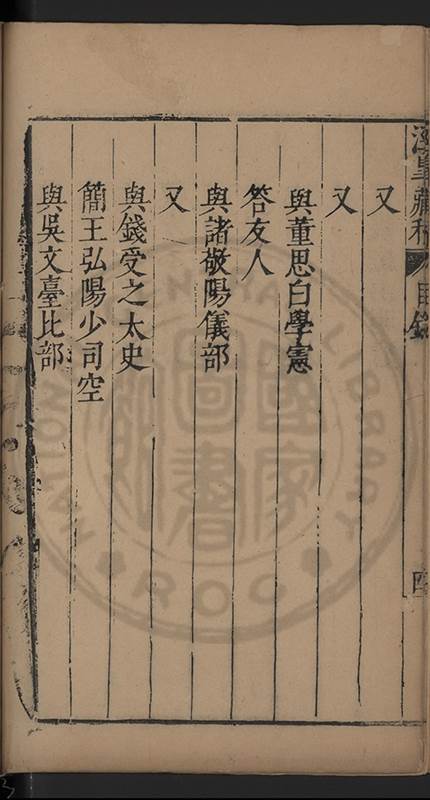 涇皐藏稿 目錄 四
又
又
與董思白學憲
答友人
與諸敬陽儀部
又
與錢受之太史
簡王弘陽少司空
與吳文臺比部